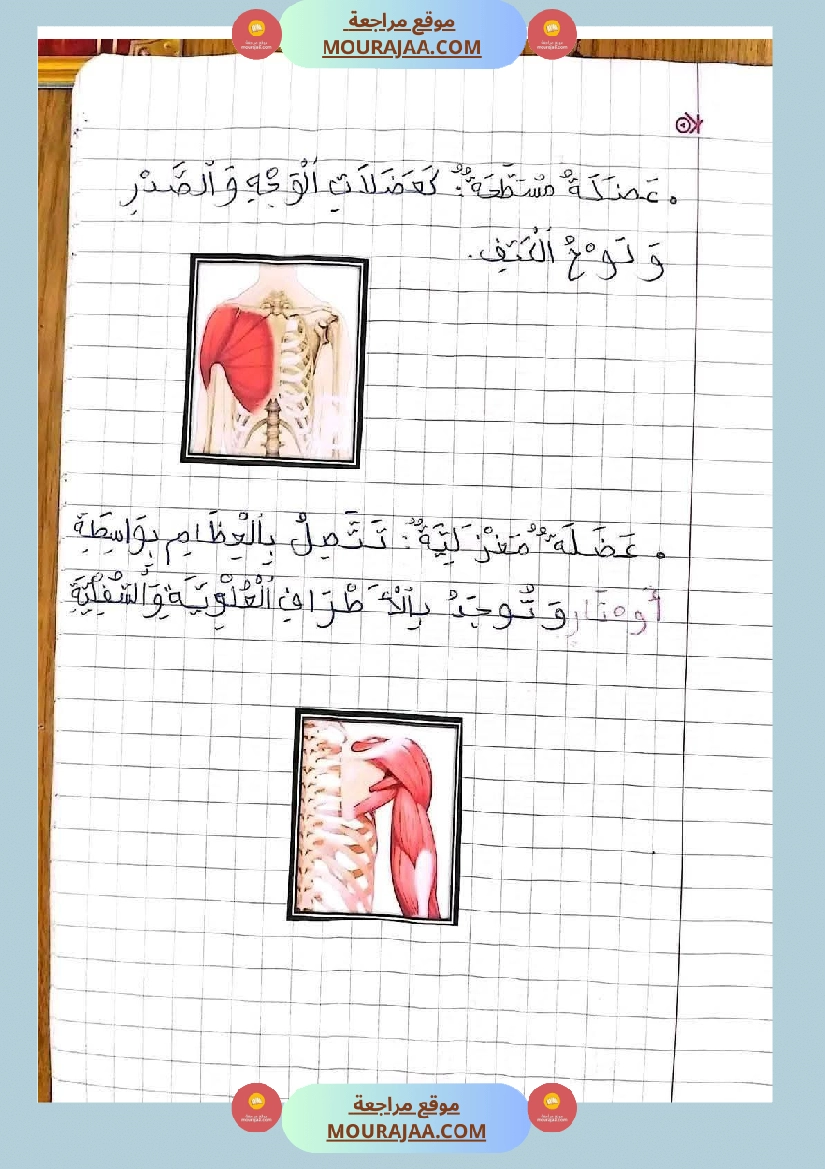 موقع مراجعة
MOURAJAA.COM
. عَضَلَةٌ مُسَطَّحَةٌ: كَعَضَلَاتِ اَلْوَجْهِ وَ اَلصَّدْرِ
وَ لَوْحُ اَلْكَتِفِ.
. عَضَلَةٌ مَغْزَلِيَّةٌ: تَتَّصِلُ بِالْعِظَامِ بِوَاسِطَةِ
أَوْتَارٍ وَتُوجَدُ بِالْأَطْرَافِ اَلْعُلْوِيَّةِ وَالسُّفْلِيَّةِ
موقع مراجعة
MOURAJAA.COM